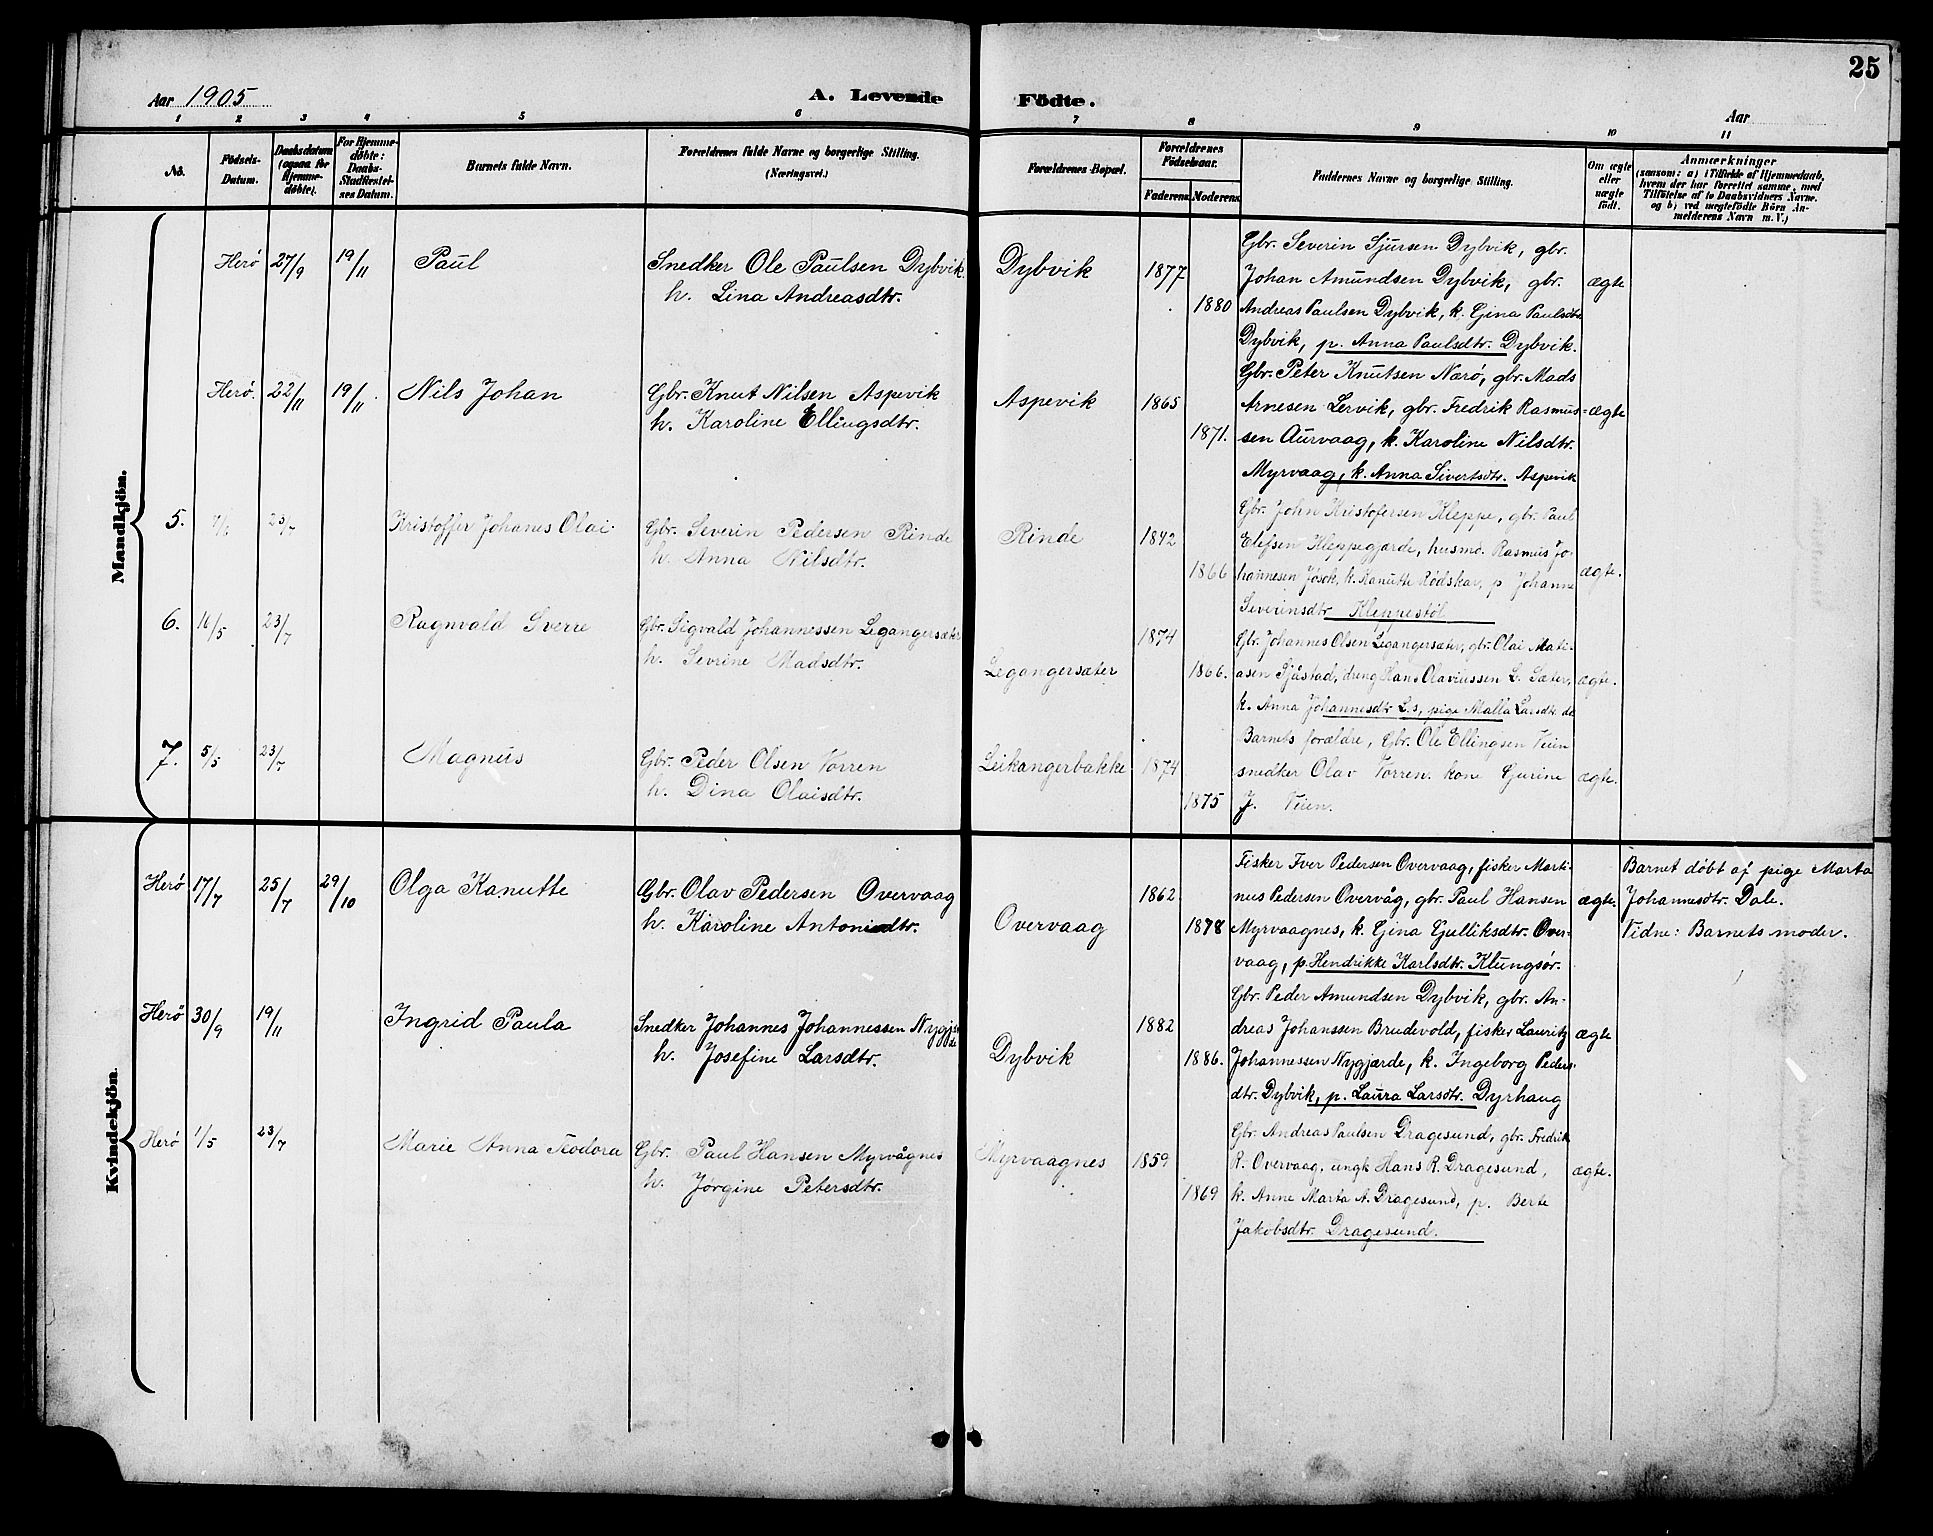 25
Aar 1905
A. Levende
Födte.
Aar
1 2 3 4 5 6 7 8 9 10 11
No.
Födsels-
Datum.
Daabsdatum
(ogsaa for
Hjemme-
døbte).
For Hjemme-
døbte:
Daabs-
Stadfæstel-
ses Datum.
Barnets fulde Navn.
Forældrenes fulde Navne og borgerlige Stilling.
(Næringsvei.)
Forældrenes Bopæl.
Forældrenes
Födselsaar.
Faderens
Moderens
Faddernes Navne og borgerlige Stilling.
Om ægte
eller
uægte
født.
Anmærkninger
(saasom: a) i Tilfælde af Hjemmedaab,
hvem der har forrettet samme, med
Tilföielse af to Daabsvidners Navne.
og b) ved uægtefödte Börn An-
melderens Navn m. V.)
Mandkjön.
Herö 27/9 19/11 Paul
Snedker Ole Paulsen Dybvik
h. Lina Andreasdtr.
Dybvik 1877
1880
Gbr. Severin Sjursen Dybvik, gbr.
Johan Amundsen Dybvik, gbr.
Andreas Paulsen Dybvik, k. Gina Paulsdtr
Dybvik, p. Anna Paulsdtr. Dybvik.
ægte
Herö. 22/11 19/11. Nils Johan
Gbr. Knut Nilsen Aspevik
h. Karoline Ellingsdtr.
Aspevik 1865
1871.
Gbr. Peter Knutsen Nærö, gbr. Mads
Arnesen Lervik, gbr. Fredrik Rasmus-
sen Aurvaag, k. Karoline Nilsdtr.
Myrvaag, k. Anna Sivertsdtr. Aspevik
ægte
5. 23/7 Kristoffer Johanes Olai.
Gbr. Severin Pedersen Rinde
h. Anna Nilsdtr.
Rinde 1842
1866
Gbr. John Kristofersen Kleppe, gbr. Paul
Elefsen Kleppegjærde, husmd. Rasmus Jo-
hannesen Jøsok, k. Kanutte Rødskar, p Johanne
Severinsdtr Kleppestöl
ægte.
6. 16/5 23/7 Ragnvald Sverre
Gbr. Sigvald Johannessen Legangersæter
h. Sevrine Madsdtr.
Legangersæter
1874
1866.
Gbr. Johannes Olsen Legangersæter, gbr. Olai Mati-
asen Sjåstad, dreng Hans Olaviussen L. Sæter,
k. Anna Johannesdtr L.s, pige Malla Larsdtr. ds
ægte.
7. 5/5 23/7 Magnus
Gbr. Peder Olsen Vorren
h. Dina Olaisdtr.
Leikangerbakke 1874
1875
Barnets forældre, Gbr. Ole Ellingsen Veien
snedker Olav Vorren. kone Gurine
J. Veien.
ægte.
Kvindekjön.
Herö 17/7 25/7 29/10 Olga Kanutte
Gbr. Olav Pedersen Overvaag
h. Karoline Antonidtr.
Overvaag
1862
1878
Fisker Iver Pedersen Overvaag, fisker Marti-
nus Pedersen Overvåg, gbr. Paul Hansen
Myrvaagnes, k. Gina Gulliksdtr. Over-
vaag, p. Hendrikke Karlsdtr. Klungsör.
ægte.
Barnet döbt af pige Marta
Johannesdtr. Dale.
Vidne: Barnets moder.
Herö 30/9 19/11 Ingrid Paula
Snedker Johannes Johannessen Nygjærde
h. Josefine Larsdtr.
Dybvik
1882
1886.
Gbr. Peder Amundsen Dybvik, gbr. An-
dreas Johanssen Brudevold, fisker Lauritz
Johannessen Nygjærde, k. Ingeborg Peders-
dtr. Dybvik, p. Laura Larsdtr. Dyrhaug
ægte
Herö 1/5 23/7 Marie Anna Teodora
Gbr. Paul Hansen Myrvågnes
h. Jørgine Petersdtr.
Myrvaagnes 1859
1869
Gbr. Andreas Paulsen Dragesund, gbr. Fredrik
R. Overvaag, ungk Hans R. Dragesund,
k. Anne Marta A. Dragesund, p. Berte
Jakobsdtr. Dragesund.
ægte.